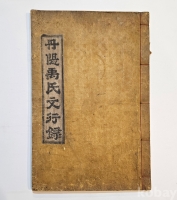 丹陽禹氏文行錄